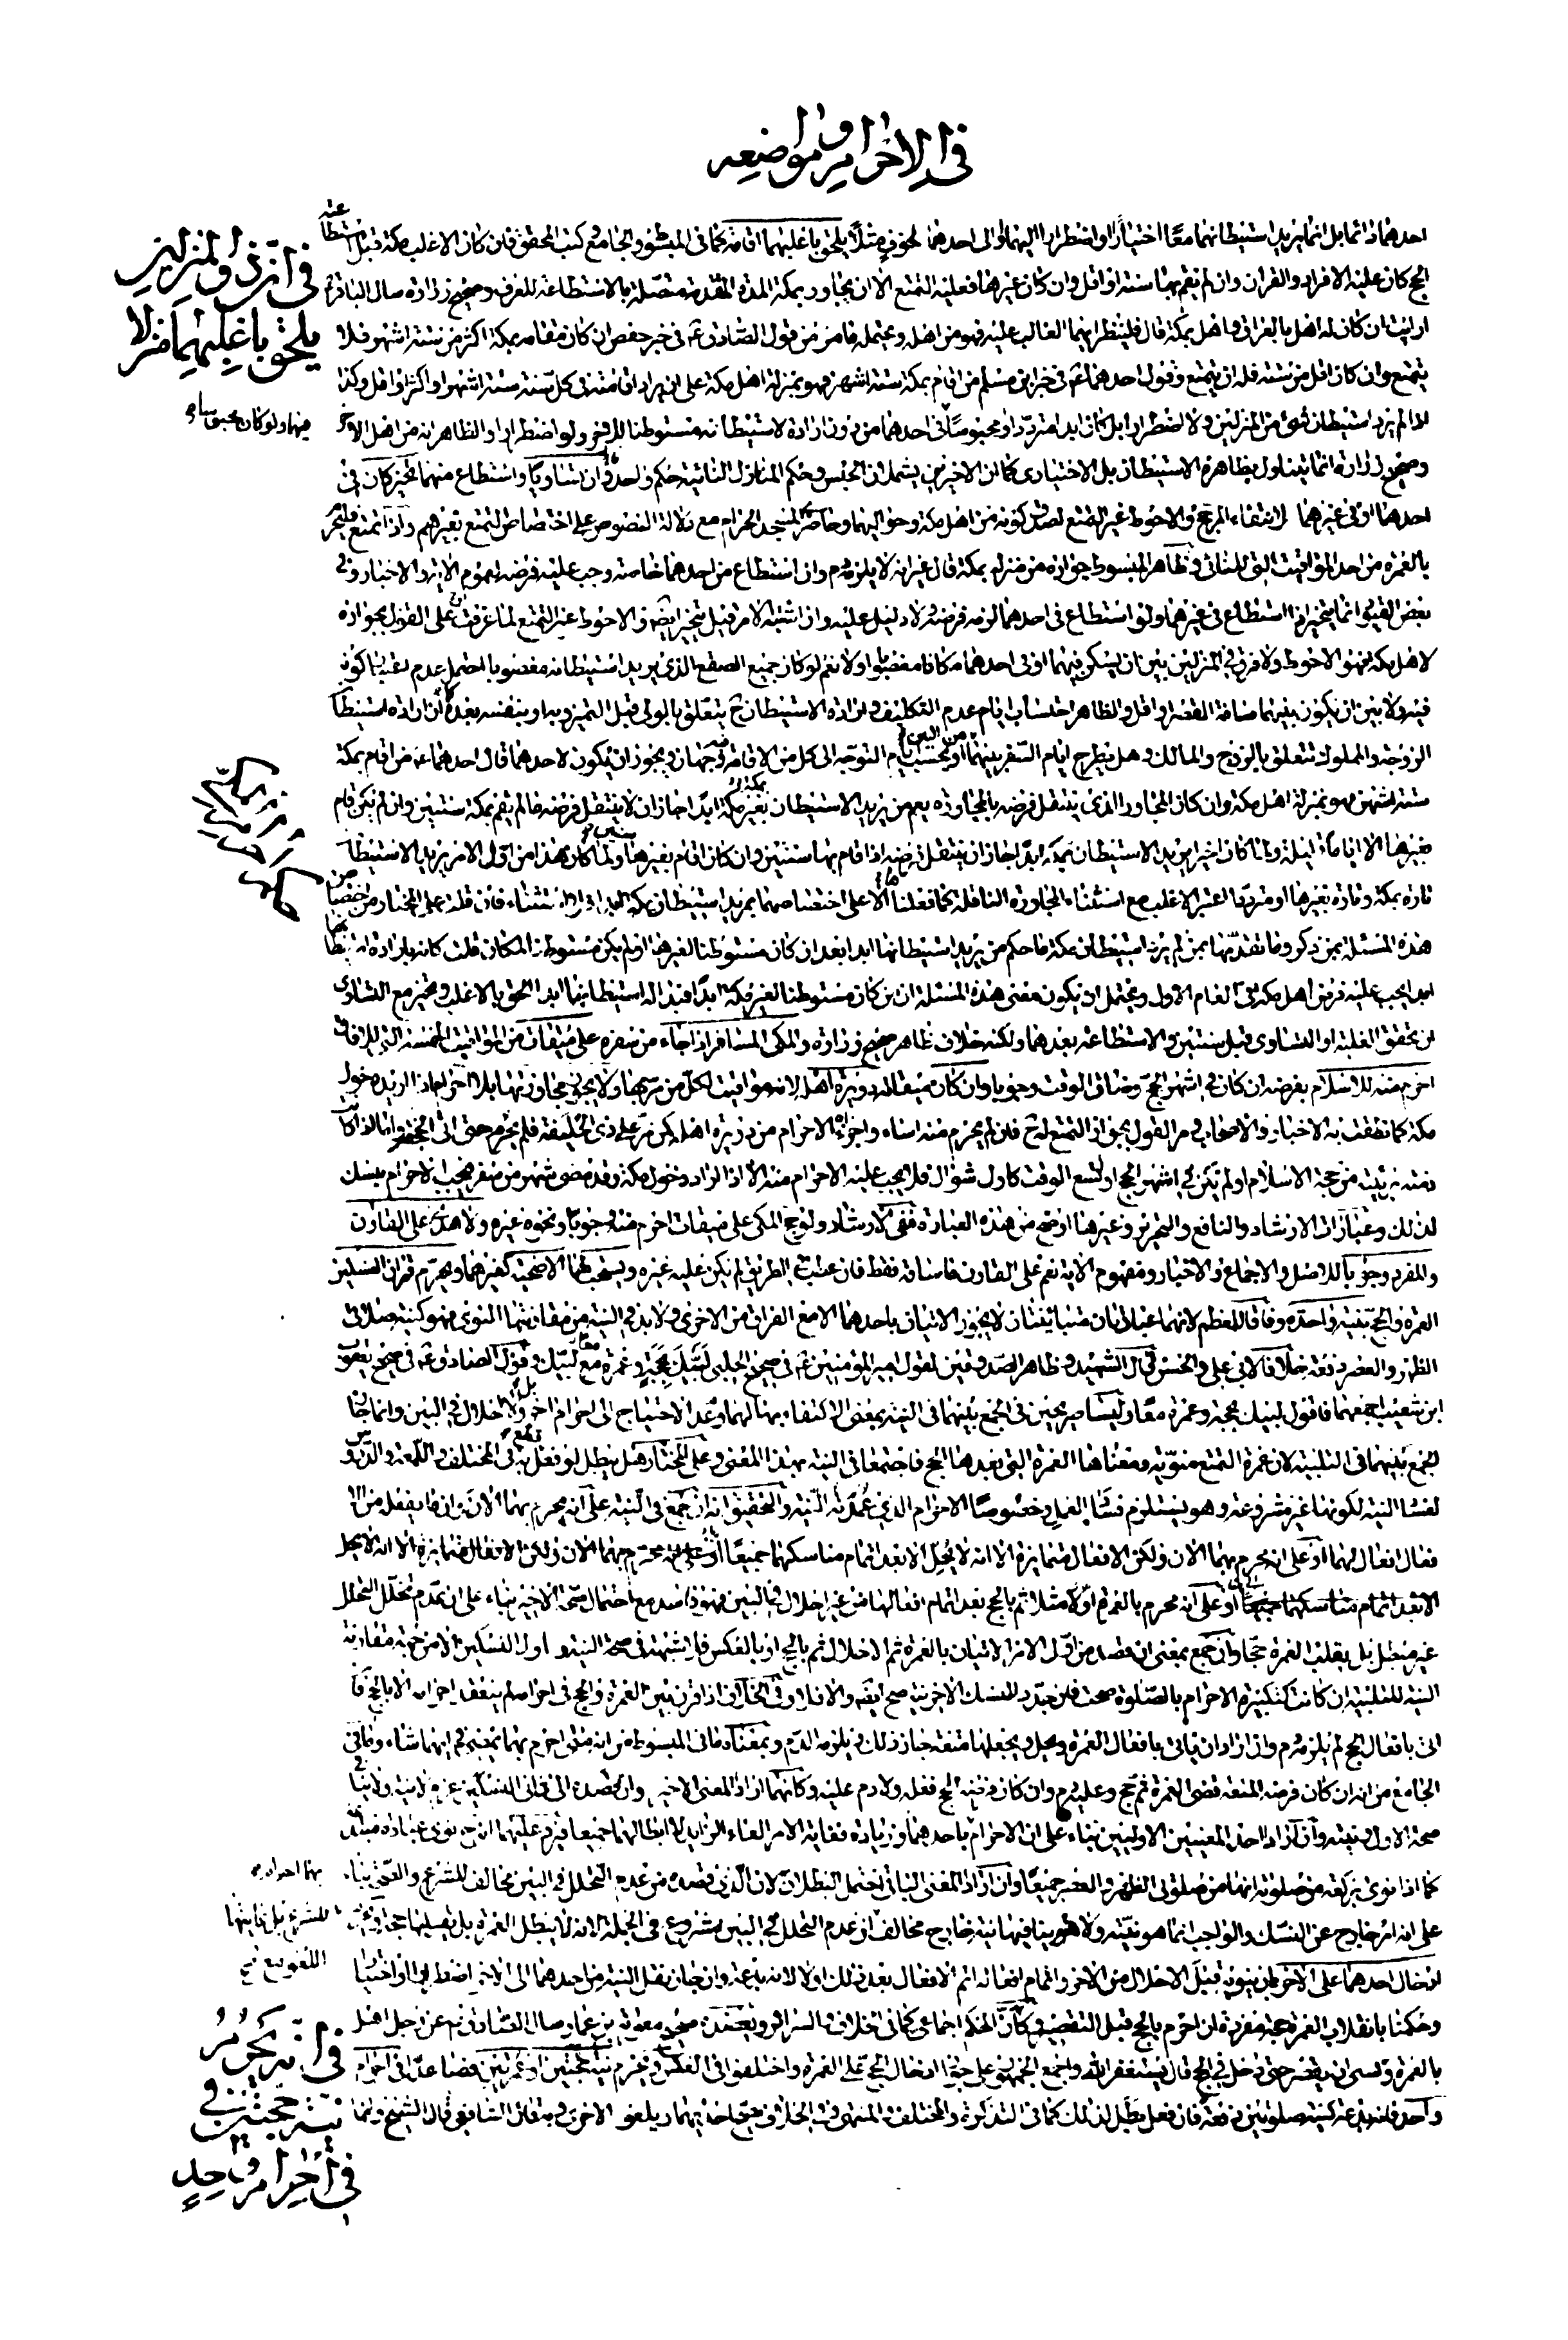 في الاحرام ومواضعه
احدهما دائما بل انما يريد استيطانهما معا اختيارا او اضطرارا اليهما او الى احدهما لخوف مثلا يلحق باغلبهما اقامة كما في المبسوط والجامع وكتب المحقق فان كان الاغلب مكة قبل استطاعته
الحج كان عليه الافراد والقران وان لم يقم بها سنة او اقل وان كان غيرها فعليه التمتع الا ان يجاور بمكة المدة المتقدمة متصلة بالاستطاعة للعرف وصحيح زرارة سال الباقر ع
ارايت ان كان له اهل بالعراق واهل بمكة قال فلينظر ايهما الغالب عليه فهو من اهله ويحتمله ما مر من قول الصادق ع في خبر حفص ان كان مقامه بمكة اكثر من ستة اشهر فلا
يتمتع وان كان اقل من ستة فله ان يتمتع وقول احدهما ع في خبر ابن مسلم من اقام بمكة ستة اشهر فهو بمنزلة اهل مكة على ان يراد اقامته في كل سنة ستة اشهر او اكثر او اقل وكذا
اذا لم يرد استيطان شئ من المنزلين ولا اضطر اليه بل كان ابدا مترددا او محبوسا في احدهما من دون ارادة لاستيطانه مستوطنا للاخر ولو اضطرارا والظاهر انه من اهل الاخر
وصحيح زرارة انما يتناول بظاهره الاستيطان بل الاختياري كما ان الاخيرين يشملان الحبس وحكم المنازل الثلاثة حكم واحد فان تساويا واستطاع منهما تخير كان في
احدهما او في غيرهما لانتفاء المرجح والاحوط غير التمتع لصدق كونه من اهل مكة وحواليها وحاضري المسجد الحرام مع دلالة النصوص على اختصاص التمتع بغيرهم واذا تمتع فليحرم
بالعمرة من احد المواقيت التي للنائي وظاهر المبسوط جوازه من منزله بمكة قال غير انه لا يلزمه دم وان استطاع من احدهما خاصة وجب عليه فرضه لعموم الاية والاخبار وفي
بعض القيود انما يتخير اذا استطاع في غيرهما ولو استطاع في احدهما لزمه فرضه ولا دليل عليه وان اشتبه الامر قيل تخير ايضا والاحوط غير التمتع لما عرفت على القول بجوازه
لاهل مكة فهو الاحوط ولا فرق في المنزلين بين ان يسكن فيهما او في احدهما مكانا مغصوبا او لا نعم لو كان جميع الصقع الذي يريد استيطانه مغصوبا احتمل عدم اعتبار كونه
فيه ولا بين ان يكون بينهما مسافة القصر او اقل والظاهر احتساب ايام عدم التكليف وارادة الاستيطان ح يتعلق بالولي قبل التميز وبه او بنفسه بعده كما ان ارادة استيطان
الزوجة والمملوك تتعلق بالزوج والمالك وهل يطرح ايام السفر بينهما من البين او يحتسب ايام التوجه الى كل من الاقامة فيه وجهان ويجوز ان يكون لاحدهما قال احدهما ع من اقام بمكة
ستة اشهر فهو بمنزلة اهل مكة وان كان المجاور الذي ينتقل فرضه بالمجاورة يعم من يريد الاستيطان بغير مكة ابدا جاز ان لا ينتقل فرضه ما لم يقم بمكة سنتين وان لم يكن قام
بغيرها الا اياما قليلة ولما كان اخيرا يريد الاستيطان بمكة ابدا جاز ان ينتقل فرضه اذا قام بها سنتين وان كان اقام بغيرها سنين ولما كان هذا من اول الامر يريد الاستيطان
تارة بمكة وتارة بغيرها او مترددا اعتبر الاغلب مع استثناء المجاورة الناقلة كما فعلنا
هذه المسئلة بمن ذكر وما تقدمها بمن لم يرد استيطان مكة فما حكم من يريد استيطانها ابدا بعد ان كان مستوطنا لغيرها او لم يكن مستوطنا لمكان قلت كانه بارادة استيطانها
ابدا يجب عليه فرض اهل مكة من العام الاول ويحتمل ان يكون معنى هذه المسئلة ان من كان مستوطنا لغير مكة ابدا فبدا له استيطانها ابدا الحق بالاغلب وتخير مع التساوي
ان تحقق الغلبة او التساوي قبل سنتين والاستطاعة بعدهما ولكنه خلاف ظاهر صحيح زرارة والمكي المسافر اذا جاء من سفره على ميقات من المواقيت الخمسة التي للافاق
احرم منه للاسلام بفرضه ان كان في اشهر الحج وضاق الوقت وجوبا وان كان ميقاته دويرة اهله لانها مواقيت لكل من مر بها ولا يجوز مجاوزتها بلا احرام اذا اريد دخول
مكة كما نطقت به الاخبار والاصحاب ومر القول بجواز التمتع له ح فان لم يحرم منه اساء واجزأه الاحرام من دويرة اهله كمن مر على ذي الحليفة فلم يحرم حتى اتى الجحفة واما اذا كانت
ذمته بريئة من حجة الاسلام او لم تكن في اشهر الحج او لسع الوقت كاول شوال فلا يجب عليه الاحرام منه الا اذا اراد دخول مكة وقد مضى شهر من سفره فيجب الاحرام بنسك
لذلك وعبارات الارشاد والنافع والتحرير وغيرها اوضح من هذه العبارة ففي الارشاد ولو حج المكي على ميقات احرم منه وجوبا ونحوه غيره ولا هدي على القارن
والمفرد وجوبا بالاصل والاجماع والاخبار ومفهوم الاية نعم على القارن ما ساقه فقط فان عطب في الطريق لم يكن عليه غيره ويستحب لهما الاضحية كغيرهما ويحرم قران النسكين
العمرة والحج بنية واحدة وفاقا للمعظم لانهما عبادتان متباينتان لا يجوز الاتيان باحدهما الا مع الفراغ من الاخرى ولا بد في النية من مقارنتها المنوي فهو كنية صلاتي
الظهر والعصر دفعة خلافا لابي علي والحسن قال الشهيد وظاهر الصدوقين لقول امير المؤمنين ع في صحيح الحلبي لبيك بحجة وعمرة معا لبيك وقول الصادق ع في صحيح يعقوب
ابن شعيب اجمعهما فاقول لبيك بحجة وعمرة معا وليسا صريحين في الجمع بينهما في النية بمعنى الاكتفاء بها لهما وعدم الاحتياج الى احرام اخر ولا احلال في البين وانما جاز
الجمع بينهما في التلبية لان عمرة التمتع منوية ومعناها العمرة التي بعدها الحج فاجتمعا في النية بهذا المعنى وعلى المختار هل يبطل لو فعل يقع في المختلف واللمعة والدروس
لفساد النية لكونها غير مشروعة وهو يستلزم فساد العمل وخصوصا الاحرام الذي عمدته النية والتحقيق انه ان جمع في النية على انه محرم بهما الان وان ما يفعله من الا
فعال افعال لهما او على انه محرم بهما الان ولكن الافعال متمايزة الا انه لا يحل الا بعد اتمام مناسكهما جميعا او على انه محرم بهما الان ولكن الافعال متمايزة الا انه لا يحل
الا بعد اتمام مناسكهما جميعا او على انه محرم بالعمرة اولا مثلا ثم بالحج بعد اتمام افعالها من غير احلال في البين فهو فاسد مع احتمال صحة الاخير بناء على ان عدم تخلل التحلل
غير مبطل بل يقلب العمرة حجا وان جمع بمعنى انه قصد من اول الامر الاتيان بالعمرة ثم الاحلال ثم بالحج او بالعكس فلا شبهة في صحة النية واول النسكين الا من جهة مقارنة
النية للتلبية ان كانت كتكبيرة الاحرام بالصلوة صحت فان جدد للنسك الاخر نية صح ايضا والا فلا وفي الخلاف اذا قرن بين العمرة والحج في احرامه لم ينعقد احرامه الا بالحج فان
اتى بافعال الحج لم يلزمه دم وان اراد ان ياتي بافعال العمرة ويحل ويجعلها متعة جاز ذلك ويلزمه الدم وبمعناه ما في المبسوط من انه متى احرم بهما يمضي في ايهما شاء وما في
الجامع من انه ان كان فرضه المتعة قضى العمرة ثم حج وعليه دم وان كان فرضه الحج فعله ولا دم عليه وكانهما ارادا المعنى الاخير وان قصده الى ثاني النسكين عزم لا نية ولا ينافي
صحة الاول ونيته وان اراد احد المعنيين الاولين بناء على ان الاحرام باحدهما وزيادة فغاية الامر الغاء الزايد لا ابطالهما جميعا فيرد عليهما انه ح نوى عبادة مبتدعة
كما اذا نوى بركعة من صلوته انها من صلوتي الظهر والعصر جميعا وان اراد المعنى الثاني احتمل البطلان لان الذي قصده من عدم التحلل في البين مخالف للشرع والصحة بناء
على انه امر خارج عن النسك والواجب انما هو نيته ولا ينافيها نية خارج مخالف او عدم التحلل في البين مشروع في الجملة لانه لا يبطل العمرة بل يقلبها حجا ويحرم
ادخال احدهما على الاخر بان ينويه قبل الاحلال من الاخر واتمام افعاله اتم الافعال بعد ذلك او لا لانه بدعة وان جاز نقل النية من احدهما الى الاخر اضطرارا او اختيارا
وحكمنا بانقلاب العمرة حجة مفردة فان احرم بالحج قبل التقصير وكان الحكم اجماعي كما في الخلاف والسرائر ويعضده صحيح معوية بن عمار سال الصادق ع عن رجل اهل
بالعمرة ونسي ان يقصر حتى دخل في الحج قال يستغفر الله واجمع الجمهور على جواز ادخال الحج على العمرة واختلفوا في العكس ويحرم نية حجتين او عمرتين فصاعدا في احرام
واحد فانه بدعة كنية صلوتين دفعة فان فعل بطل لذلك كما في التذكرة والمختلف والمنتهى وفي الخلاف يصح احديهما ويلغو الاخرى وبه قال الشافعي قال الشيخ وانما
في ان ذي المنزلين
يلحق باغلبهما منزلا
منها ولو كان يحبق سام
للشرع بل غايتها
اللغو مع
في انه يحرم
نية حجتين في
احرام واحد